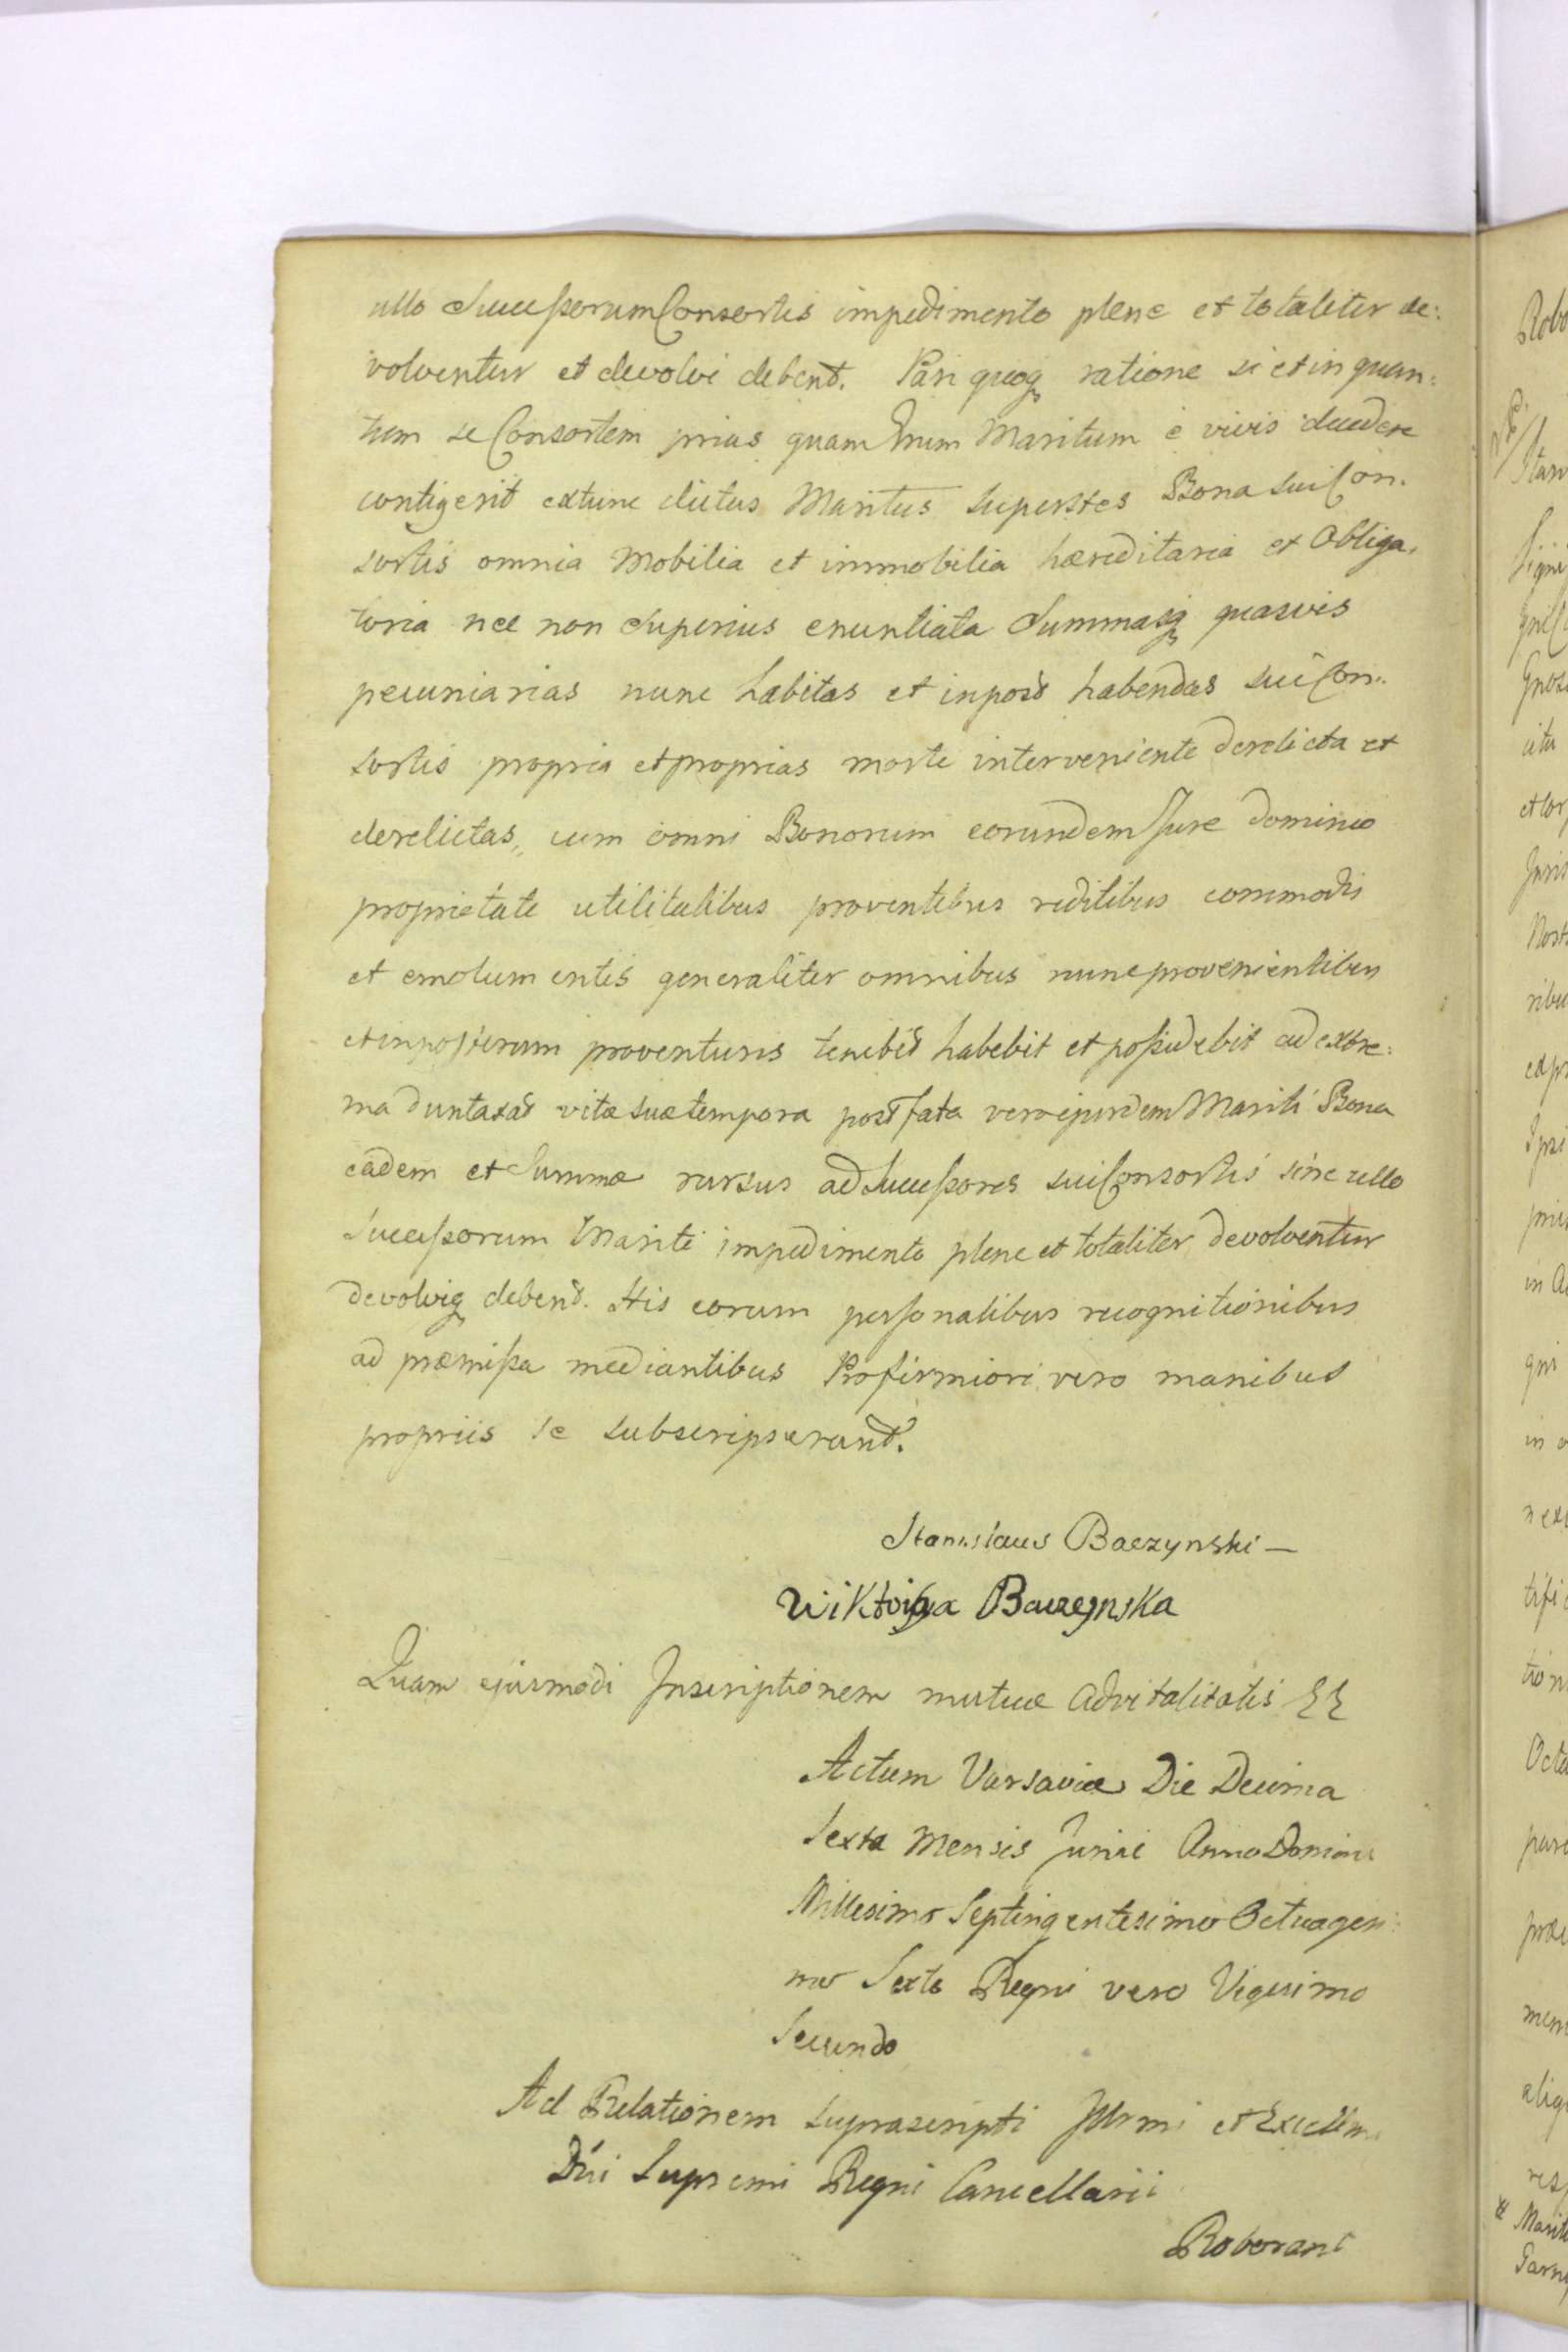 ullo Successorum Consortis impedimento plene et totaliter de:
volventur et devolvi debent. Pari quoq ratione si et in quan:
tum se Consortem prius quam Suum Maritum è vivis decedere
contigerit extunc dictus Maritus superstes Bona sui Con.
sortis omnia Mobilia et immobilia hæreditaria et Obliga.
toria nec non superius enuntiata Summasq quasvis
pecuniarias nunc habitas et in post habendas sui Con.
sortis propria et proprias morte interveniente derelicta et
derelictas, cum omni Bonorum eorundem Jure dominio
proprietate utilitatibus proventibus reditibus commodis
et emolumentis generaliter omnibus nunc provenientibus
et in posterum proventuris tenebit habebit et possidebit ad extre:
ma duntaxat vitæ suæ tempora post fata vero ejusdem Mariti Bona
eadem et Summæ rursus ad Successores sui Consortis sine ullo
Successorum Mariti impedimento plene et totaliter devolventur
devolviq debent. His eorum personalibus recognitionibus
ad præmissa mediantibus Pro firmiori vero manibus
propriis se subscripserunt.
Stanislaus Baczynski —
Wiktoria Baczynska
Quam ejusmodi Inscriptionem mutuæ Advitalitatis
Actum Varsaviæ Die Decima
Sexta Mensis Junii Anno Domini
Millesimo Septingentesimo Octuagesi:
mo Sexto Regni vero Vigesimo
Secundo
Ad Relationem suprascripti Illrmi et Excellmi
Dni Supremi Regni Cancellarii
Roborant